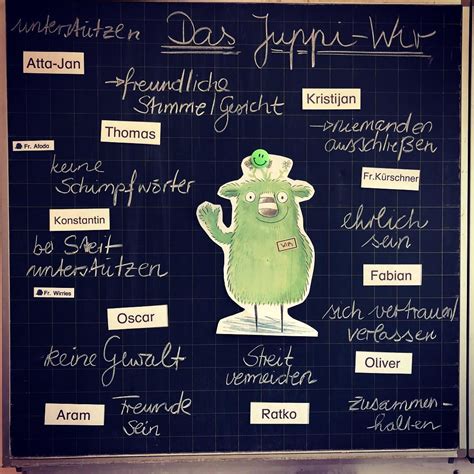 unterstützen
Das Juppi-Wir
Atta-Jan
→freundliche
Stimme/Gesicht
Kristijan
Thomas
→niemanden
ausschließen
Fr. Afoda
keine
Schimpfwörter
Fr. Kürschner
Konstantin
ehrlich
sein
bei Streit
unterstützen
Wir
Fabian
Fr. Wirries
Oscar
sich vertrauen/
verlassen
keine Gewalt
Streit
vermeiden
Oliver
Aram
Freunde
sein
Ratko
zusammen-
halten